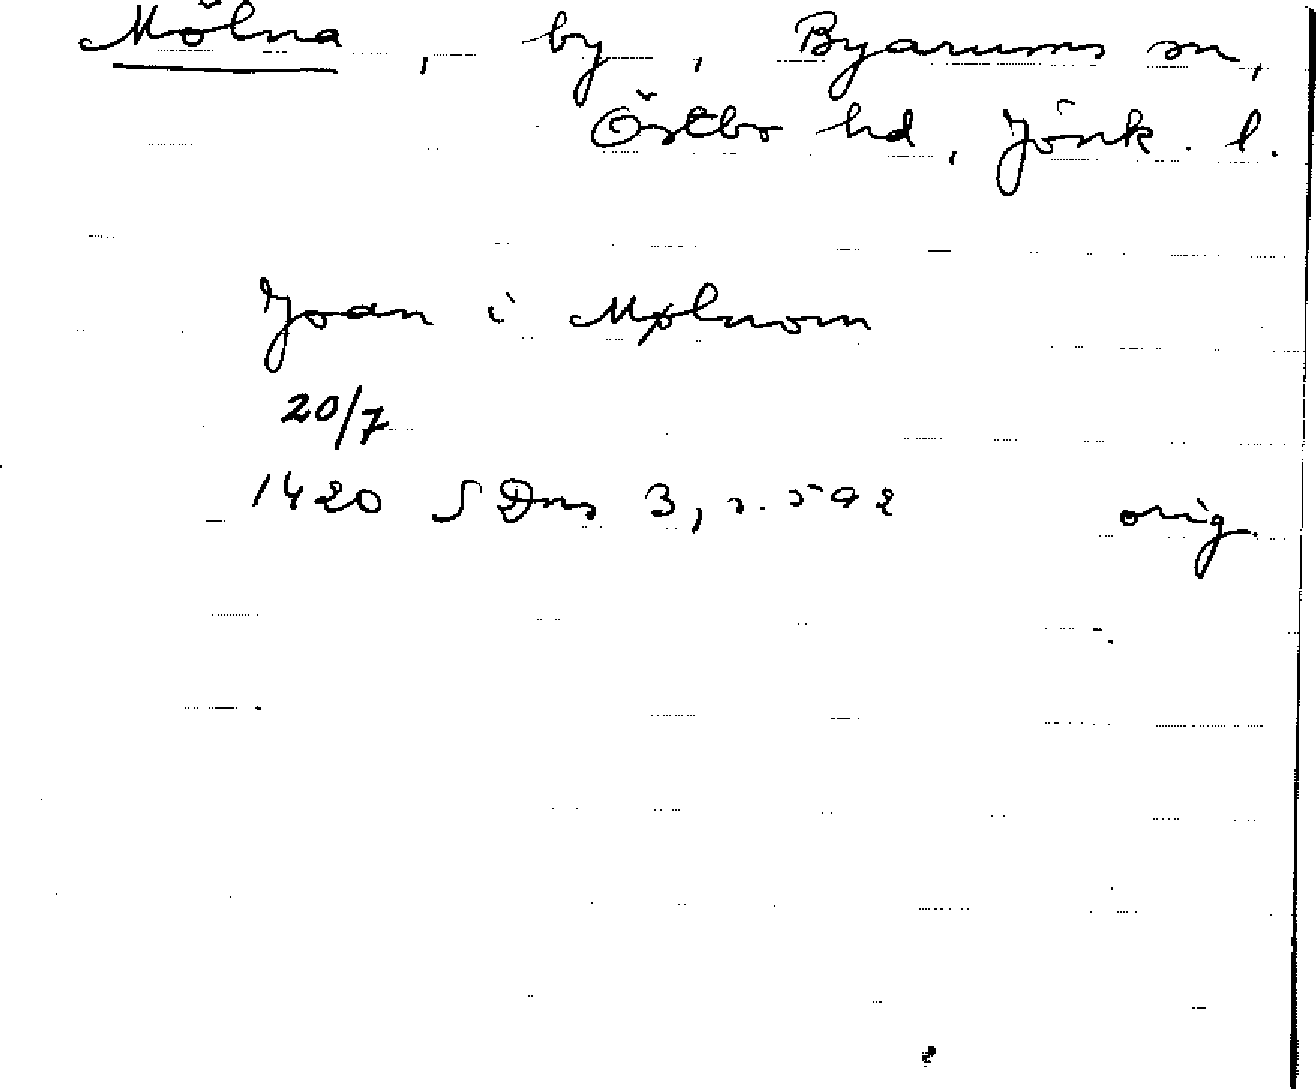 Mölna, by, Byarums sn,
Östbo hd, Jönk. l.
Joan i Mølnom
20/7
1420 SDns 3, s. 592 orig.